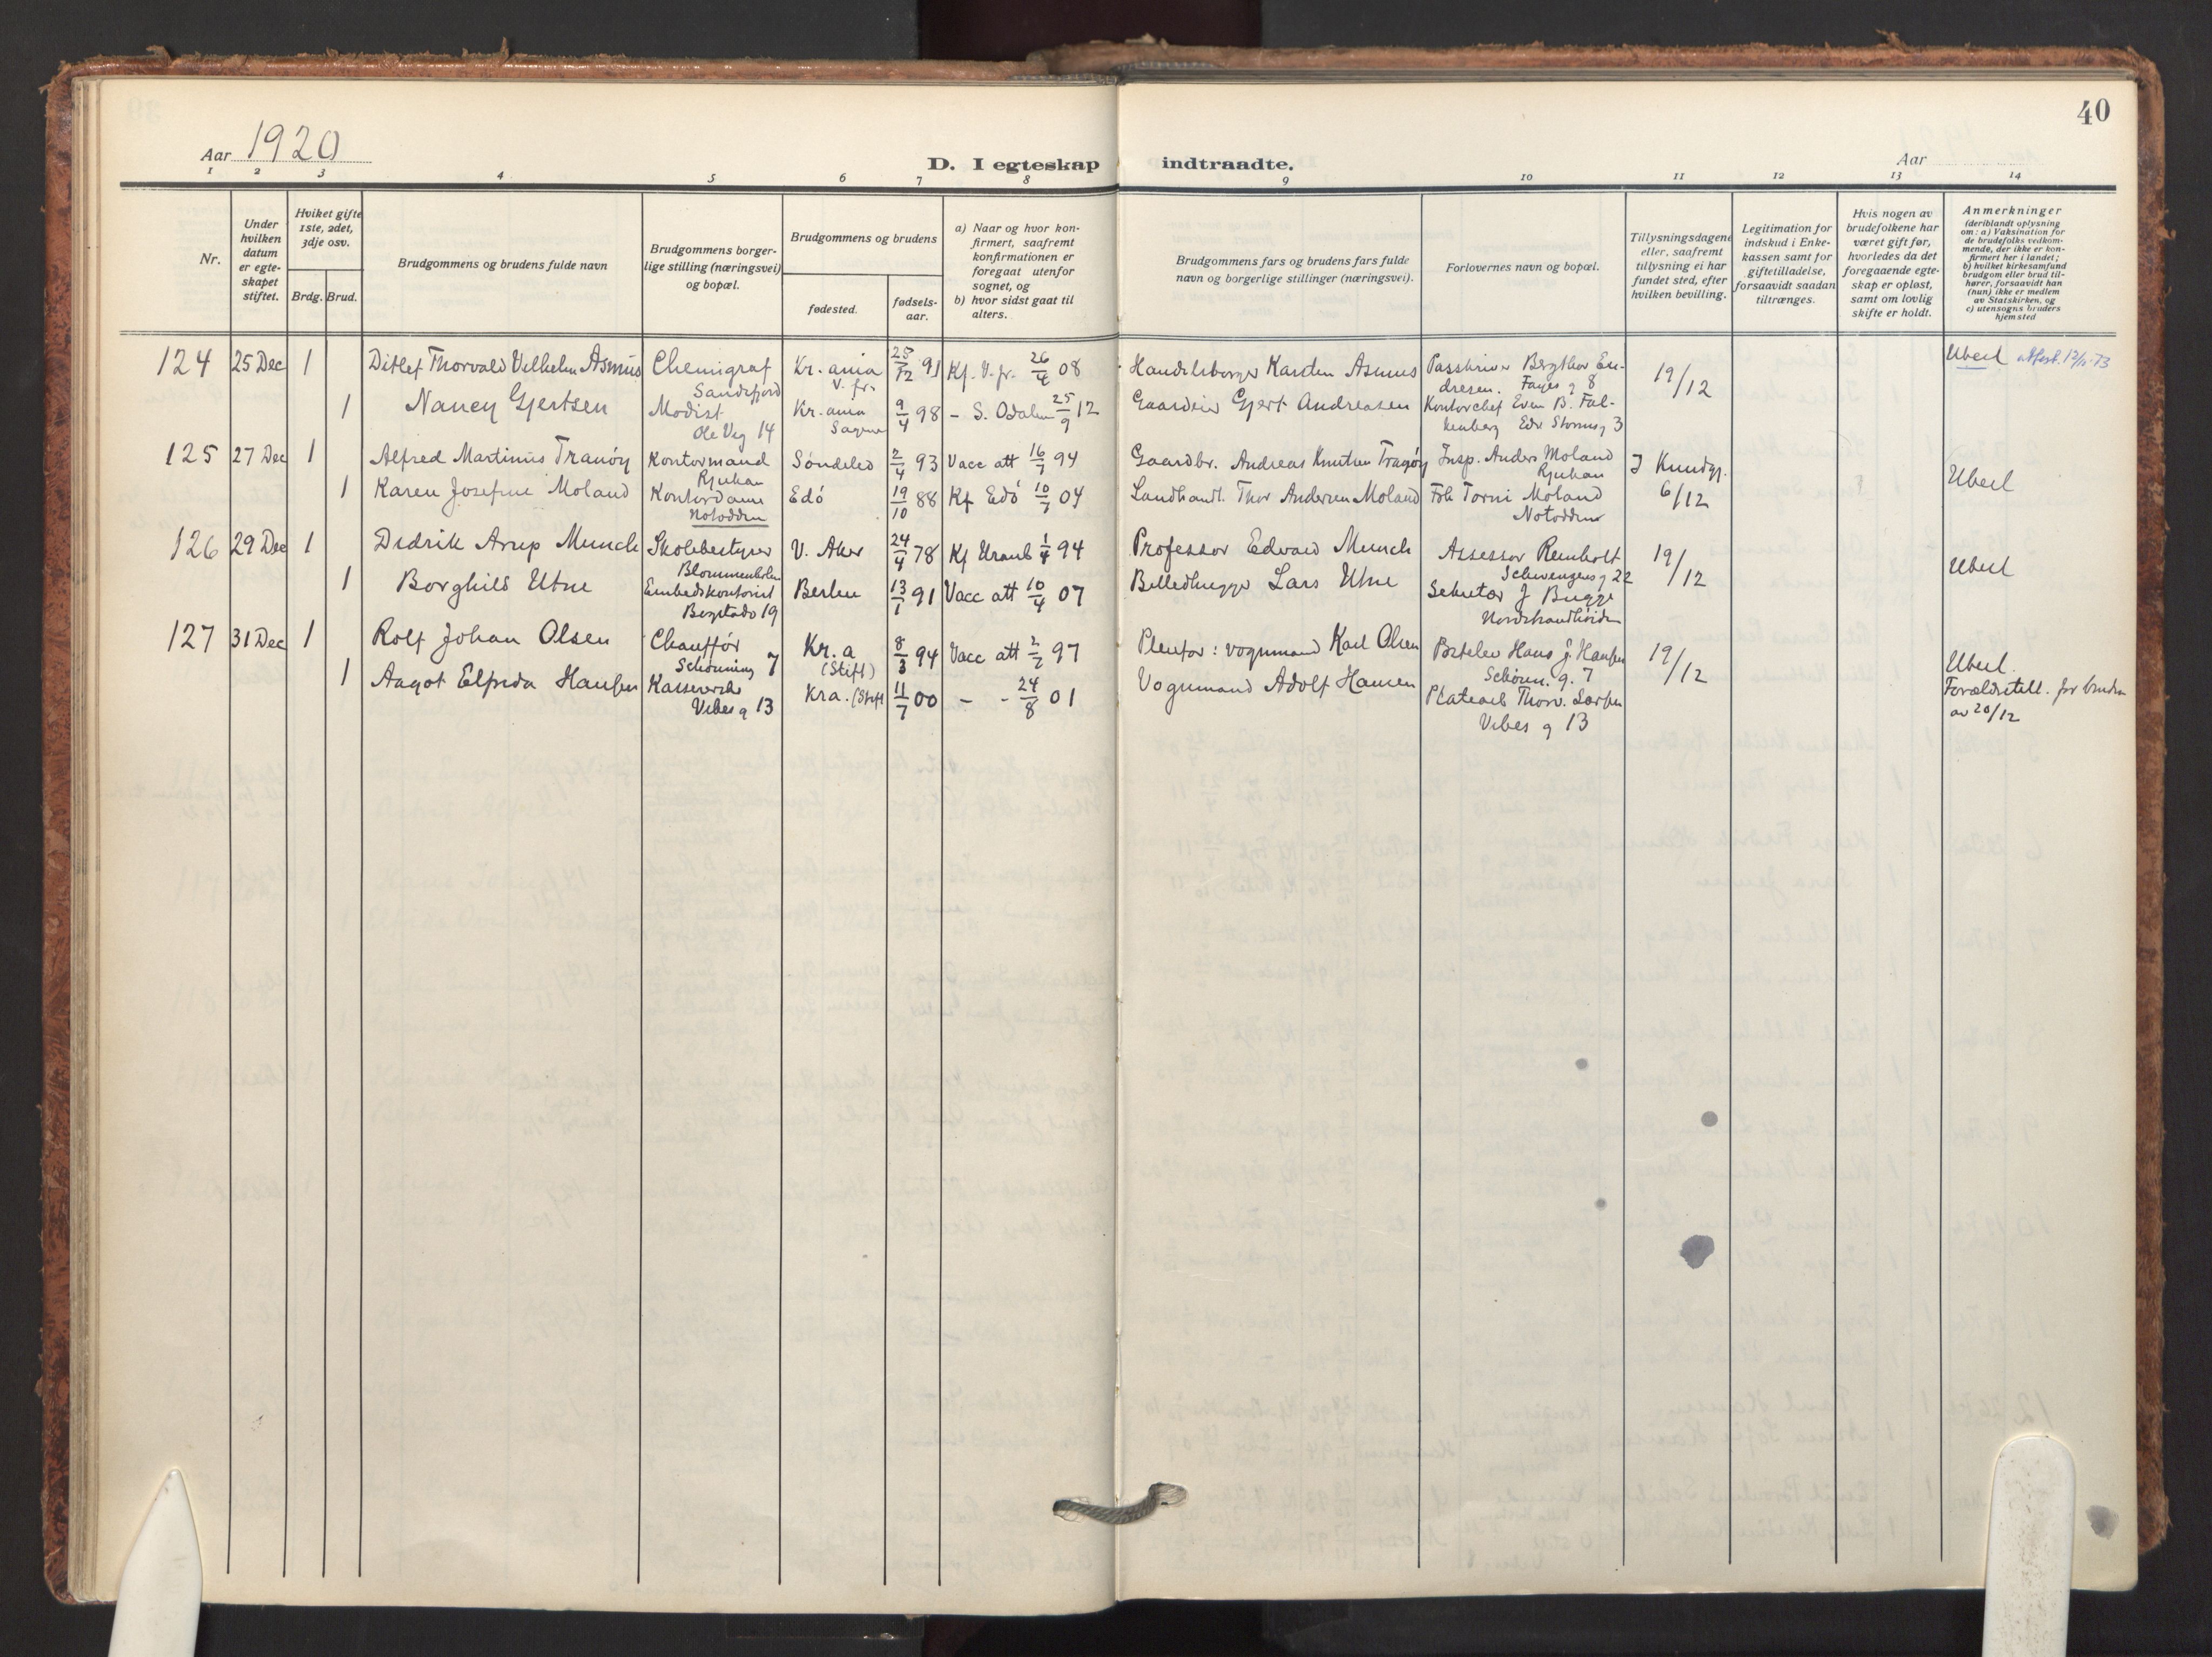 40
Aar 1920
D. I egteskap indtraadte.
Aar
1 2 3 4 5 6 7 8 9 10 11 12 13 14
Nr.
Under hvilken datum er egte-skapet stiftet.
Hvilket gifte 1ste, 2det, 3dje osv.
Brdg. Brud.
Brudgommens og brudens fulde navn
Brudgommens borger-lige stilling (næringsvei) og bopæl.
Brudgommens og brudens
fødested.
fødsels-aar.
a) Naar og hvor kon-firmert, saafremt konfirmationen er foregaat utenfor sognet, og
b) hvor sidst gaat til alters.
Brudgommens fars og brudens fars fulde navn og borgerlige stillinger (næringsvei).
Forlovernes navn og bopæl.
Tillysningsdagene eller, saafremt tillysning ei har fundet sted, efter hvilken bevilling.
Legitimation for indskud i Enke-kassen samt for giftetilladelse, forsaavidt saadan tiltrænges.
Hvis nogen av brudefolkene har været gift før, hvorledes da det foregaaende egte-skap er opløst, samt om lovlig skifte er holdt.
Anmerkninger
(deriblandt oplysning om: a) Vaksination for de brudefolks vedkom-mende, der ikke er kon-firmert her i landet;
b) hvilket kirkesamfund brudgom eller brud til-hører, forsaavidt han (hun) ikke er medlem av Statskirken, og
c) utensogns bruders hjemsted
124 25 Dec 1 Ditlef Thorvald Vilhelm Asmus Chemigraf Kr.ania 25/12 91 Kf. V. fr. 26/4 08 Handelsborger Karsten Asmus 19/12 Ubesl attest
Sandefjord V. fr.
1 Nancy Gjertsen Modist Kr.ania 9/4 98 - S. Odalen 25/9 12 Gaardeier Gjert Andreasen Kontorchef Even B. Fal-
Ole Vig 14 Sagene kenberg Edv Storms g 3
125 27 Dec 1 Alfred Martinus Tranøy Kontormand Søndeled 2/4 93 Vacc att 16/7 94 Gaardbr. Andreas Knutsen Tragøy Insp. Anders Moland
Rjukan Rjukan
1 Karen Josefine Moland Kontordame Edø 19/10 88 Kf Edø 10/7 04 Landhandl. Thor Andersen Moland Frk Torni Moland 6/12 Ubesl
Notodden Notodden
126 29 Dec 1 Didrik Arup Munch Skolebestyrer V. Aker 24/4 78 Kf Uranb 1/4 94 Professor Edvard Munch Assessor Reinholt 19/12 Ubesl
Blommenholm Schwensens g 22
1 Borghild Utne Embedskontorist Berlin 13/1 91 Vacc att 10/4 07 Billedhugger Lars Utne Sekretær J Bugge
Bogstadv 19 Nordstrandhøiden
127 31 Dec 1 Rolf Johan Olsen Chauffør Kr.a 8/3 94 Vacc att 2/7 97 Pleiefar: vognmand Karl Olsen Hans J. Hansen 19/12 Ubesl.
Schønning 7 (Stift) Schønn. g. 7
1 Aagot Elfrida Hansen Kassererske Kra. (Stift 11/7 00 - - 24/8 01 Vognmand Adolf Hansen Platearb Thorv. Larsen Forældretill. for bruden
Vibes g 13 Vibes g 13 av 20/12